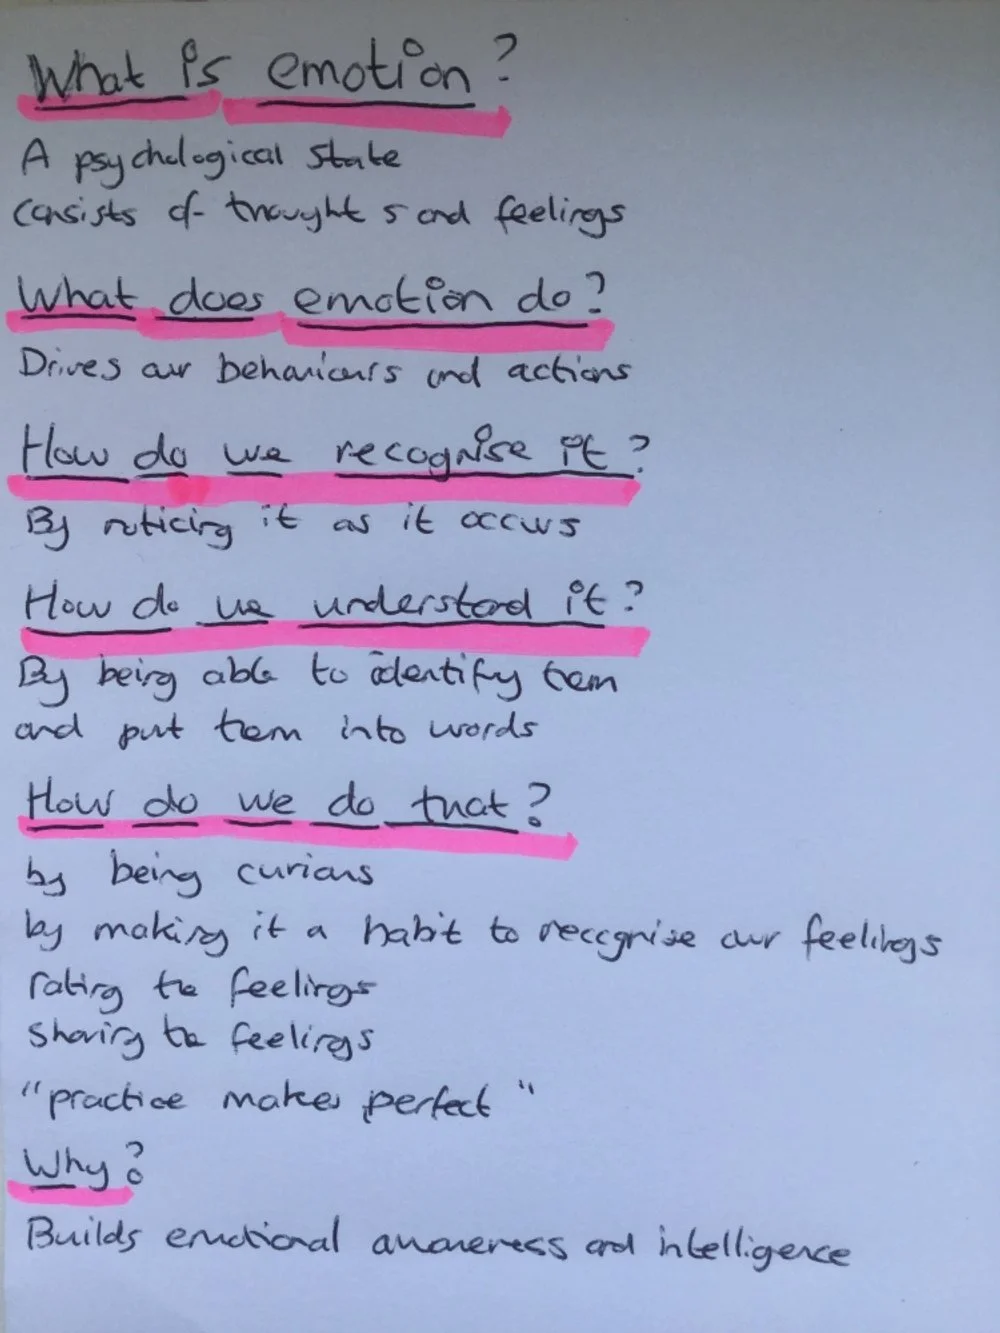 What is emotion?
A psychological state
consists of thoughts and feelings
What does emotion do?
Drives our behaviours and actions
How do we recognise it?
By noticing it as it occurs
How do we understand it?
By being able to identify them
and put them into words
How do we do that?
by being curious
by making it a habit to recognise our feelings
rating the feelings
sharing the feelings
"practice makes perfect"
Why?
Builds emotional awareness and intelligence